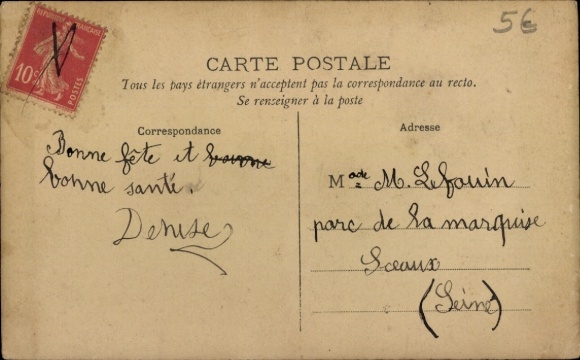 56
10c
POSTES
CARTE POSTALE
Tous les pays étrangers n'acceptent pas la correspondance au recto.
Se renseigner à la poste
Correspondance
Bonne fête et bonne
bonne santé.
Denise
Adresse
Made M. Lefouin
parc de la marquise
Sceaux
(Seine)